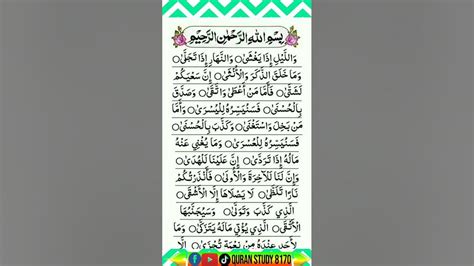 بِسْمِ اللهِ الرَّحْمٰنِ الرَّحِيْمِ
وَاللَّيْلِ إِذَا يَغْشَىٰ○ وَالنَّهَارِ إِذَا تَجَلَّىٰ○
وَمَا خَلَقَ الذَّكَرَ وَالْأُنْثَىٰ○ إِنَّ سَعْيَكُمْ
لَشَتَّىٰ○ فَأَمَّا مَنْ أَعْطَىٰ وَاتَّقَىٰ○ وَصَدَّقَ
بِالْحُسْنَىٰ○ فَسَنُيَسِّرُهُ لِلْيُسْرَىٰ○ وَأَمَّا
مَنْ بَخِلَ وَاسْتَغْنَىٰ○ وَكَذَّبَ بِالْحُسْنَىٰ○
فَسَنُيَسِّرُهُ لِلْعُسْرَىٰ○ وَمَا يُغْنِي عَنْهُ
مَالُهُ إِذَا تَرَدَّىٰ○ إِنَّ عَلَيْنَا لَلْهُدَىٰ○
وَإِنَّ لَنَا لَلْآخِرَةَ وَالْأُولَىٰ○ فَأَنْذَرْتُكُمْ
نَارًا تَلَظَّىٰ○ لَا يَصْلَاهَا إِلَّا الْأَشْقَى○
الَّذِي كَذَّبَ وَتَوَلَّىٰ○ وَسَيُجَنَّبُهَا
الْأَتْقَى○ الَّذِي يُؤْتِي مَالَهُ يَتَزَكَّىٰ○ وَمَا
لِأَحَدٍ عِنْدَهُ مِنْ نِعْمَةٍ تُجْزَىٰ○ إِلَّا
QURAN STUDY 8170